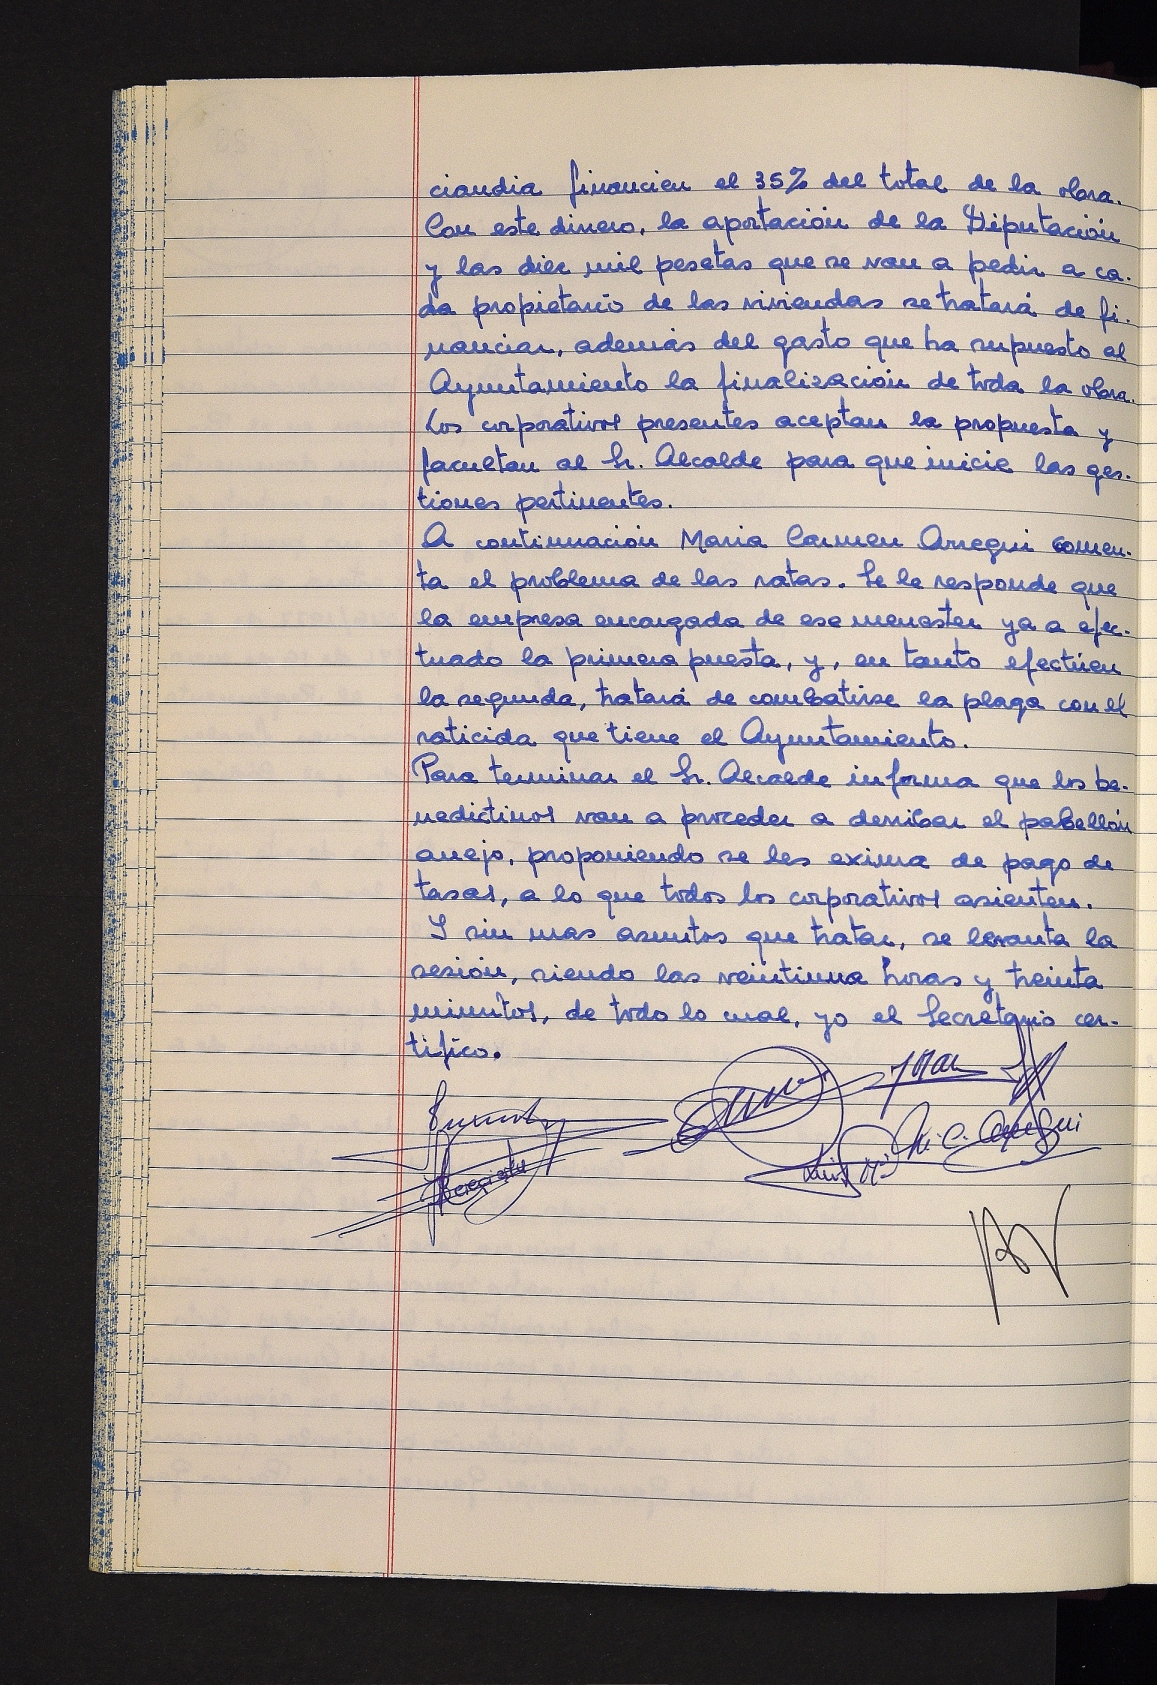 ciandia financien el 35% del total de la obra.
Con este dinero, la aportación de la Diputación
y las diez mil pesetas que se van a pedir a ca-
da propietario de las viviendas se tratará de fi-
nanciar, además del gasto que ha supuesto al
Ayuntamiento la finalización de toda la obra.
Los corporativos presentes aceptan la propuesta y
facultan al Sr. Alcalde para que inicie las ges-
tiones pertinentes.
A continuación Maria Carmen Arregui comen-
ta el problema de las ratas. Se le responde que
la empresa encargada de ese menester ya a efec-
tuado la primera puesta, y, en tanto efectúen
la segunda, tratará de combatirse la plaga con el
raticida que tiene el Ayuntamiento.
Para terminar el Sr. Alcalde informa que los be-
nedictinos van a proceder a derribar el pabellón
anejo, proponiendo se les exima de pago de
tasas, a lo que todos los corporativos asienten.
Y sin mas asuntos que tratar, se levanta la
sesión, siendo las veintiuna horas y treinta
minutos, de todo lo cual, yo el Secretario cer-
tifico.
M. C. Arregui
Luis Mª